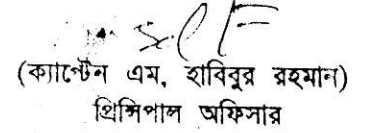 (ক্যাপ্টেন এম, হাবিবুর রহমান)
প্রিন্সিপাল অফিসার